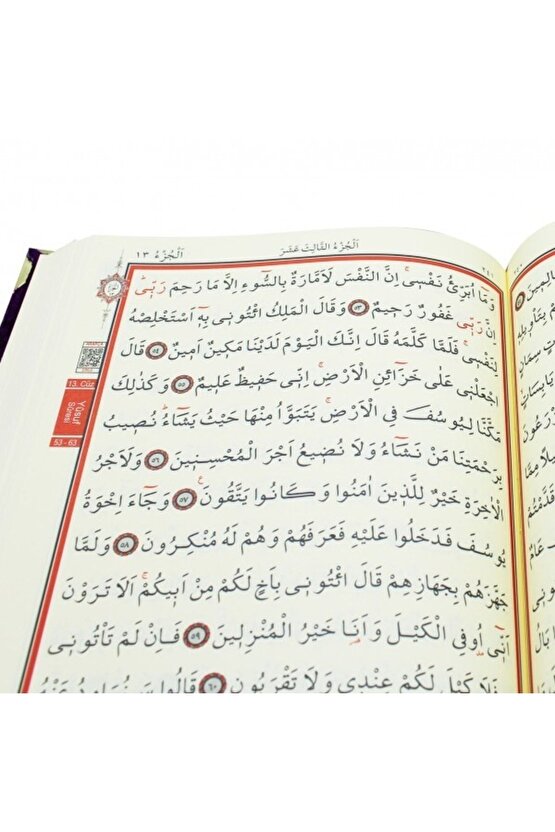 اَلْجُزْءُ الثَّالِثَ عَشَرَ
اَلْجُزْءُ ١٣
٢٤١
13. Cüz
Yûsuf
Sûresi
53 - 63
وَمَٓا اُبَرِّئُ نَفْس۪ىۚ اِنَّ النَّفْسَ لَاَمَّارَةٌ بِالسُّٓوءِ اِلَّا مَا رَحِمَ رَبّ۪ىۜ
اِنَّ رَبّ۪ى غَفُورٌ رَح۪يمٌ ﴿٥٣﴾ وَقَالَ الْمَلِكُ ائْتُون۪ى بِه۪ٓ اَسْتَخْلِصْهُ
لِنَفْس۪ىۚ فَلَمَّا كَلَّمَهُ قَالَ اِنَّكَ الْيَوْمَ لَدَيْنَا مَك۪ينٌ اَم۪ينٌ ﴿٥٤﴾ قَالَ
اجْعَلْن۪ى عَلٰى خَزَٓائِنِ الْاَرْضِۚ اِنّ۪ى حَف۪يظٌ عَل۪يمٌ ﴿٥٥﴾ وَكَذٰلِكَ
مَكَّنَّا لِيُوسُفَ فِى الْاَرْضِۚ يَتَبَوَّاُ مِنْهَا حَيْثُ يَشَٓاءُۜ نُص۪يبُ
بِرَحْمَتِنَا مَنْ نَشَٓاءُ وَلَا نُض۪يعُ اَجْرَ الْمُحْسِن۪ينَ ﴿٥٦﴾ وَلَاَجْرُ
الْاٰخِرَةِ خَيْرٌ لِلَّذ۪ينَ اٰمَنُوا وَكَانُوا يَتَّقُونَ۟ ﴿٥٧﴾ وَجَٓاءَ اِخْوَةُ
يُوسُفَ فَدَخَلُوا عَلَيْهِ فَعَرَفَهُمْ وَهُمْ لَهُ مُنْكِرُونَ ﴿٥٨﴾ وَلَمَّا
جَهَّزَهُمْ بِجَهَازِهِمْ قَالَ ائْتُون۪ى بِاَخٍ لَكُمْ مِنْ اَب۪يكُمْۚ اَلَا تَرَوْنَ
اَنّ۪ٓى اُو۫فِى الْكَيْلَ وَاَنَا۬ خَيْرُ الْمُنْزِل۪ينَ ﴿٥٩﴾ فَاِنْ لَمْ تَأْتُون۪ى
فَلَا كَيْلَ لَكُمْ عِنْد۪ى وَلَا تَقْرَبُونِ ﴿٦٠﴾ قَالُوا سَنُرَاوِدُ عَنْهُ